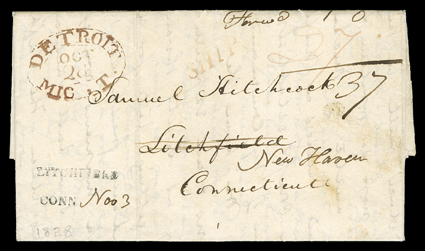 Forwd 10
DETROIT
OCT
28
MIC. T.
SHIP
27
Samuel Hitchcock 37
Litchfield
New Haven
Connecticut
LITCHFIELD
CONN. Nov 3
1828